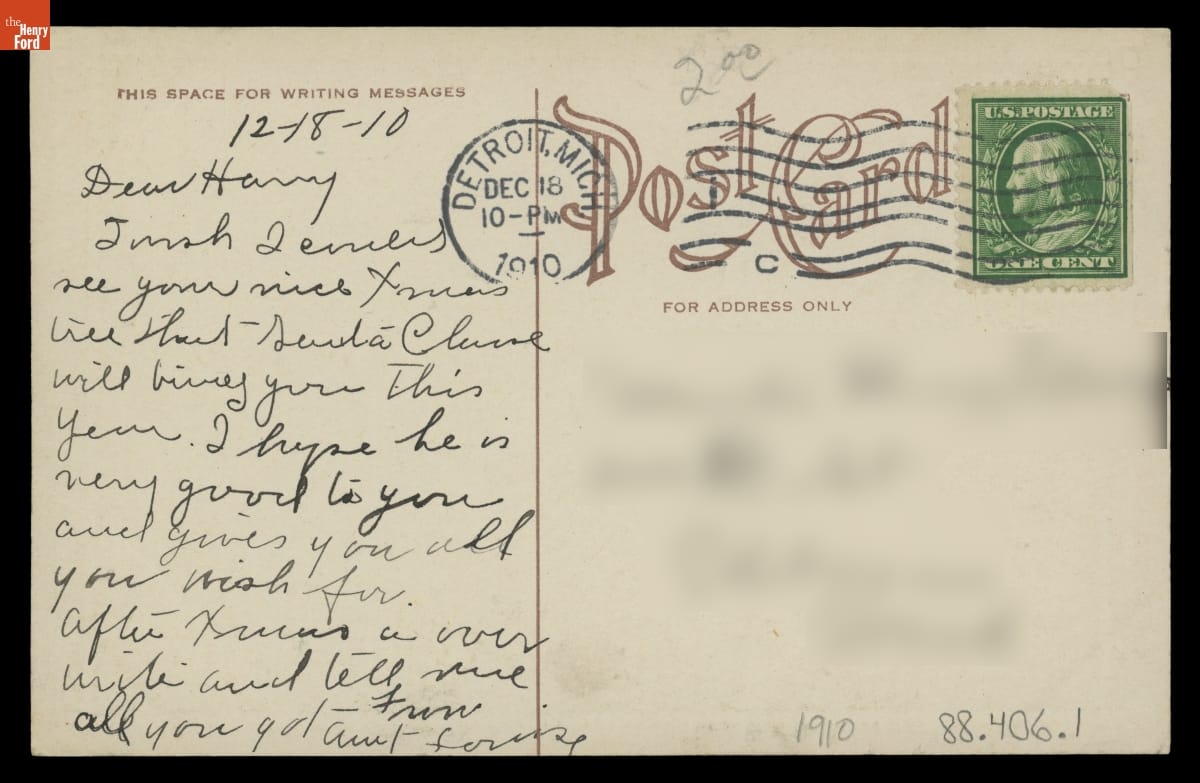 the
Henry
Ford
THIS SPACE FOR WRITING MESSAGES
12-18-10
Dear Harry
I wish I could
see your nice Xmas
tree that Santa Clause
will bring you this
Year. I hope he is
very good to you
and gives you all
you wish for.
after Xmas is over
write and tell me
all you got From
Aunt Louise
2 00
Post Card
DETROIT, MICH
DEC 18
10-PM
1910
C
U.S. POSTAGE
ONE CENT
FOR ADDRESS ONLY
1910
88.406.1